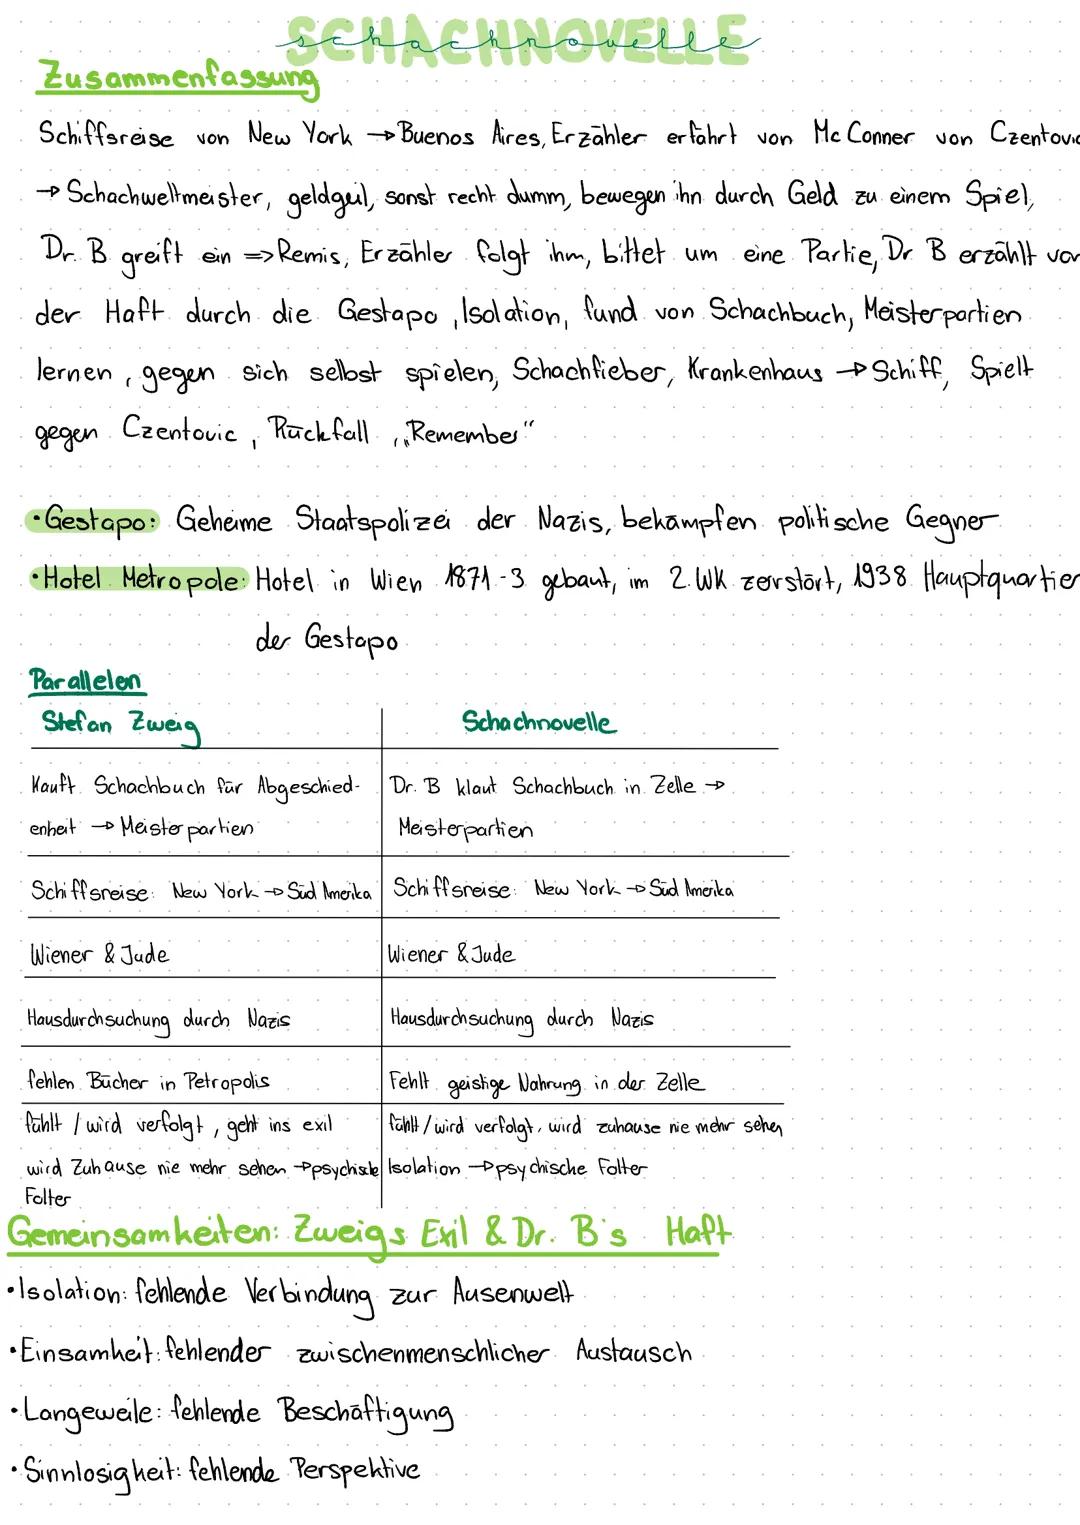 SCHACHNOVELLE
schachnovelle
Zusammenfassung
Schiffsreise von New York → Buenos Aires, Erzähler erfährt von Mc Conner von Czentovic
→ Schachweltmeister, geldgeil, sonst recht dumm, bewegen ihn durch Geld zu einem Spiel,
Dr. B greift ein => Remis, Erzähler folgt ihm, bittet um eine Partie, Dr B erzählt von
der Haft durch die Gestapo, Isolation, fund von Schachbuch, Meisterpartien
lernen, gegen sich selbst spielen, Schachfieber, Krankenhaus → Schiff, Spielt
gegen Czentovic, Rückfall „Remember“
• Gestapo: Geheime Staatspolizei der Nazis, bekämpfen politische Gegner
• Hotel Metropole: Hotel in Wien 1871-3 gebaut, im 2.WK zerstört, 1938 Hauptquartier
der Gestapo
Parallelen
Stefan Zweig Schachnovelle
Kauft Schachbuch für Abgeschied- Dr. B klaut Schachbuch in Zelle →
enheit → Meisterpartien Meisterpartien
Schiffsreise: New York → Süd Amerika Schiffsreise: New York → Süd Amerika
Wiener & Jude Wiener & Jude
Hausdurchsuchung durch Nazis Hausdurchsuchung durch Nazis
fehlen Bücher in Petropolis Fehlt geistige Nahrung in der Zelle
fühlt / wird verfolgt, geht ins exil fühlt / wird verfolgt, wird zuhause nie mehr sehen
wird Zuhause nie mehr sehen → psychische Isolation → psychische Folter
Folter
Gemeinsamkeiten: Zweigs Exil & Dr. B's Haft
• Isolation: fehlende Verbindung zur Ausenwelt
• Einsamkeit: fehlender zwischenmenschlicher Austausch
• Langeweile: fehlende Beschäftigung
• Sinnlosigkeit: fehlende Perspektive